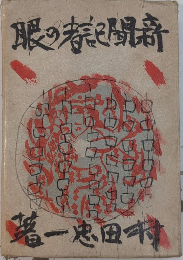 新聞記者の眼
村田忠一著